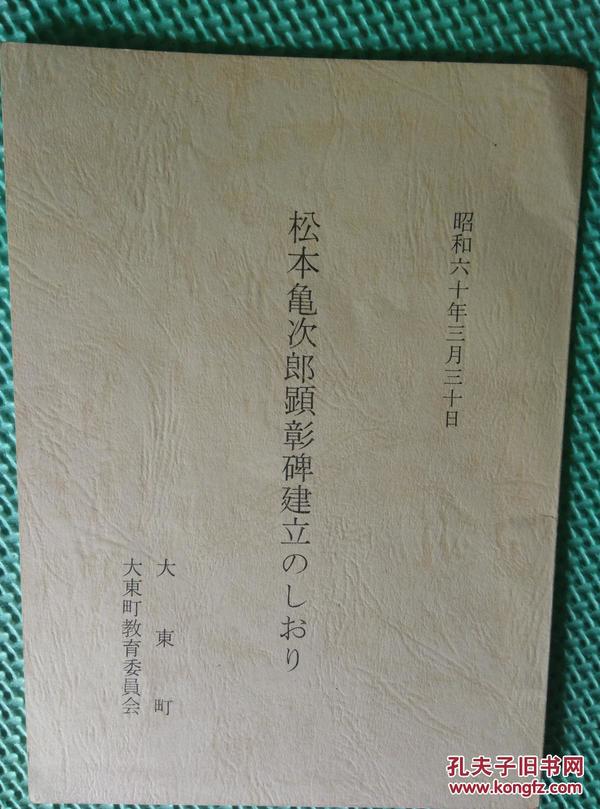 昭和六十年三月三十日
松本亀次郎顕彰碑建立のしおり
大東町
大東町教育委員会
孔夫子旧书网
www.kongfz.com